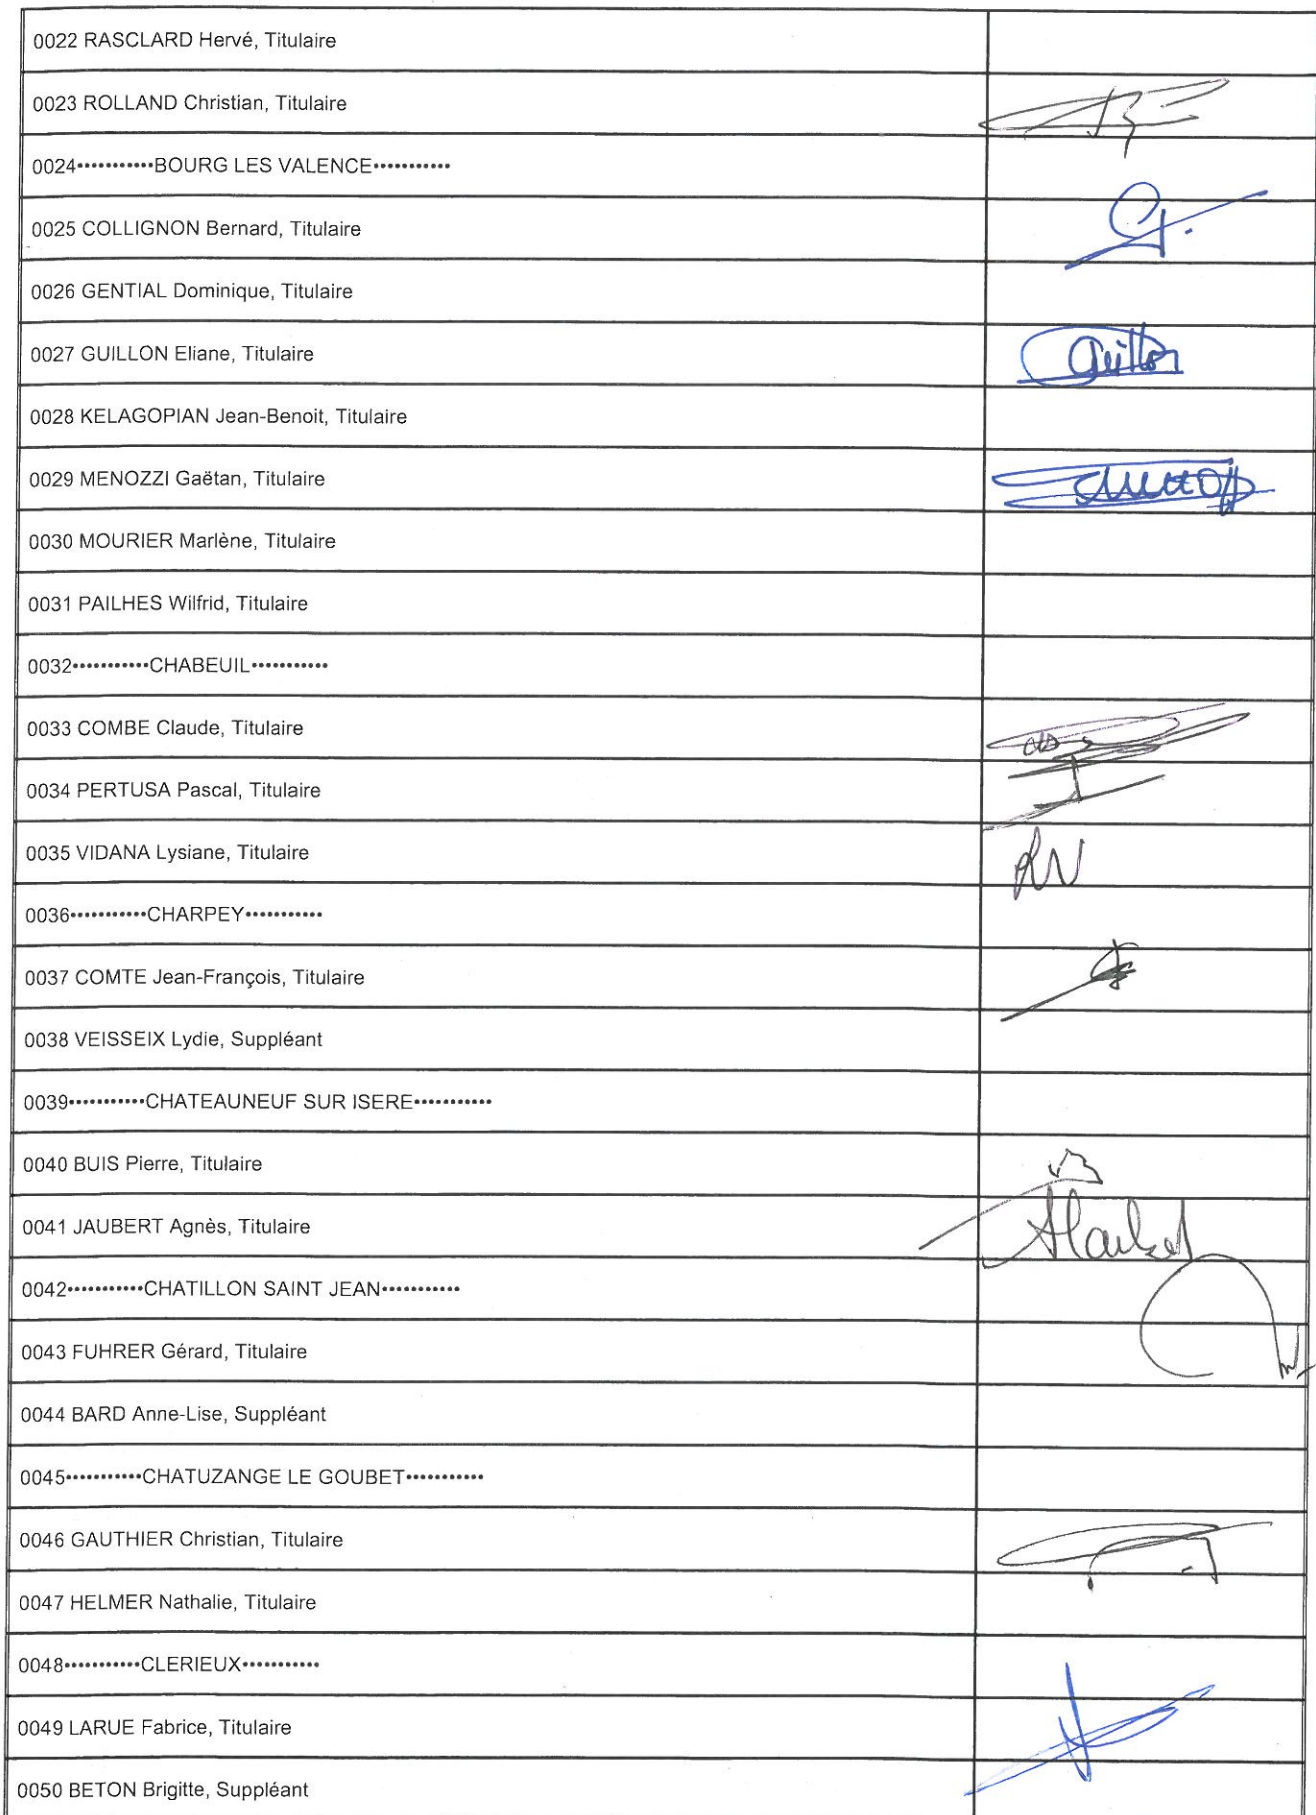 0022 RASCLARD Hervé, Titulaire
0023 ROLLAND Christian, Titulaire
0024•••••••••••BOURG LES VALENCE•••••••••••
0025 COLLIGNON Bernard, Titulaire
0026 GENTIAL Dominique, Titulaire
0027 GUILLON Eliane, Titulaire Guillon
0028 KELAGOPIAN Jean-Benoit, Titulaire
0029 MENOZZI Gaëtan, Titulaire
0030 MOURIER Marlène, Titulaire
0031 PAILHES Wilfrid, Titulaire
0032•••••••••••CHABEUIL•••••••••••
0033 COMBE Claude, Titulaire
0034 PERTUSA Pascal, Titulaire
0035 VIDANA Lysiane, Titulaire
0036•••••••••••CHARPEY•••••••••••
0037 COMTE Jean-François, Titulaire
0038 VEISSEIX Lydie, Suppléant
0039•••••••••••CHATEAUNEUF SUR ISERE•••••••••••
0040 BUIS Pierre, Titulaire
0041 JAUBERT Agnès, Titulaire
0042•••••••••••CHATILLON SAINT JEAN•••••••••••
0043 FUHRER Gérard, Titulaire
0044 BARD Anne-Lise, Suppléant
0045•••••••••••CHATUZANGE LE GOUBET•••••••••••
0046 GAUTHIER Christian, Titulaire
0047 HELMER Nathalie, Titulaire
0048•••••••••••CLERIEUX•••••••••••
0049 LARUE Fabrice, Titulaire
0050 BETON Brigitte, Suppléant